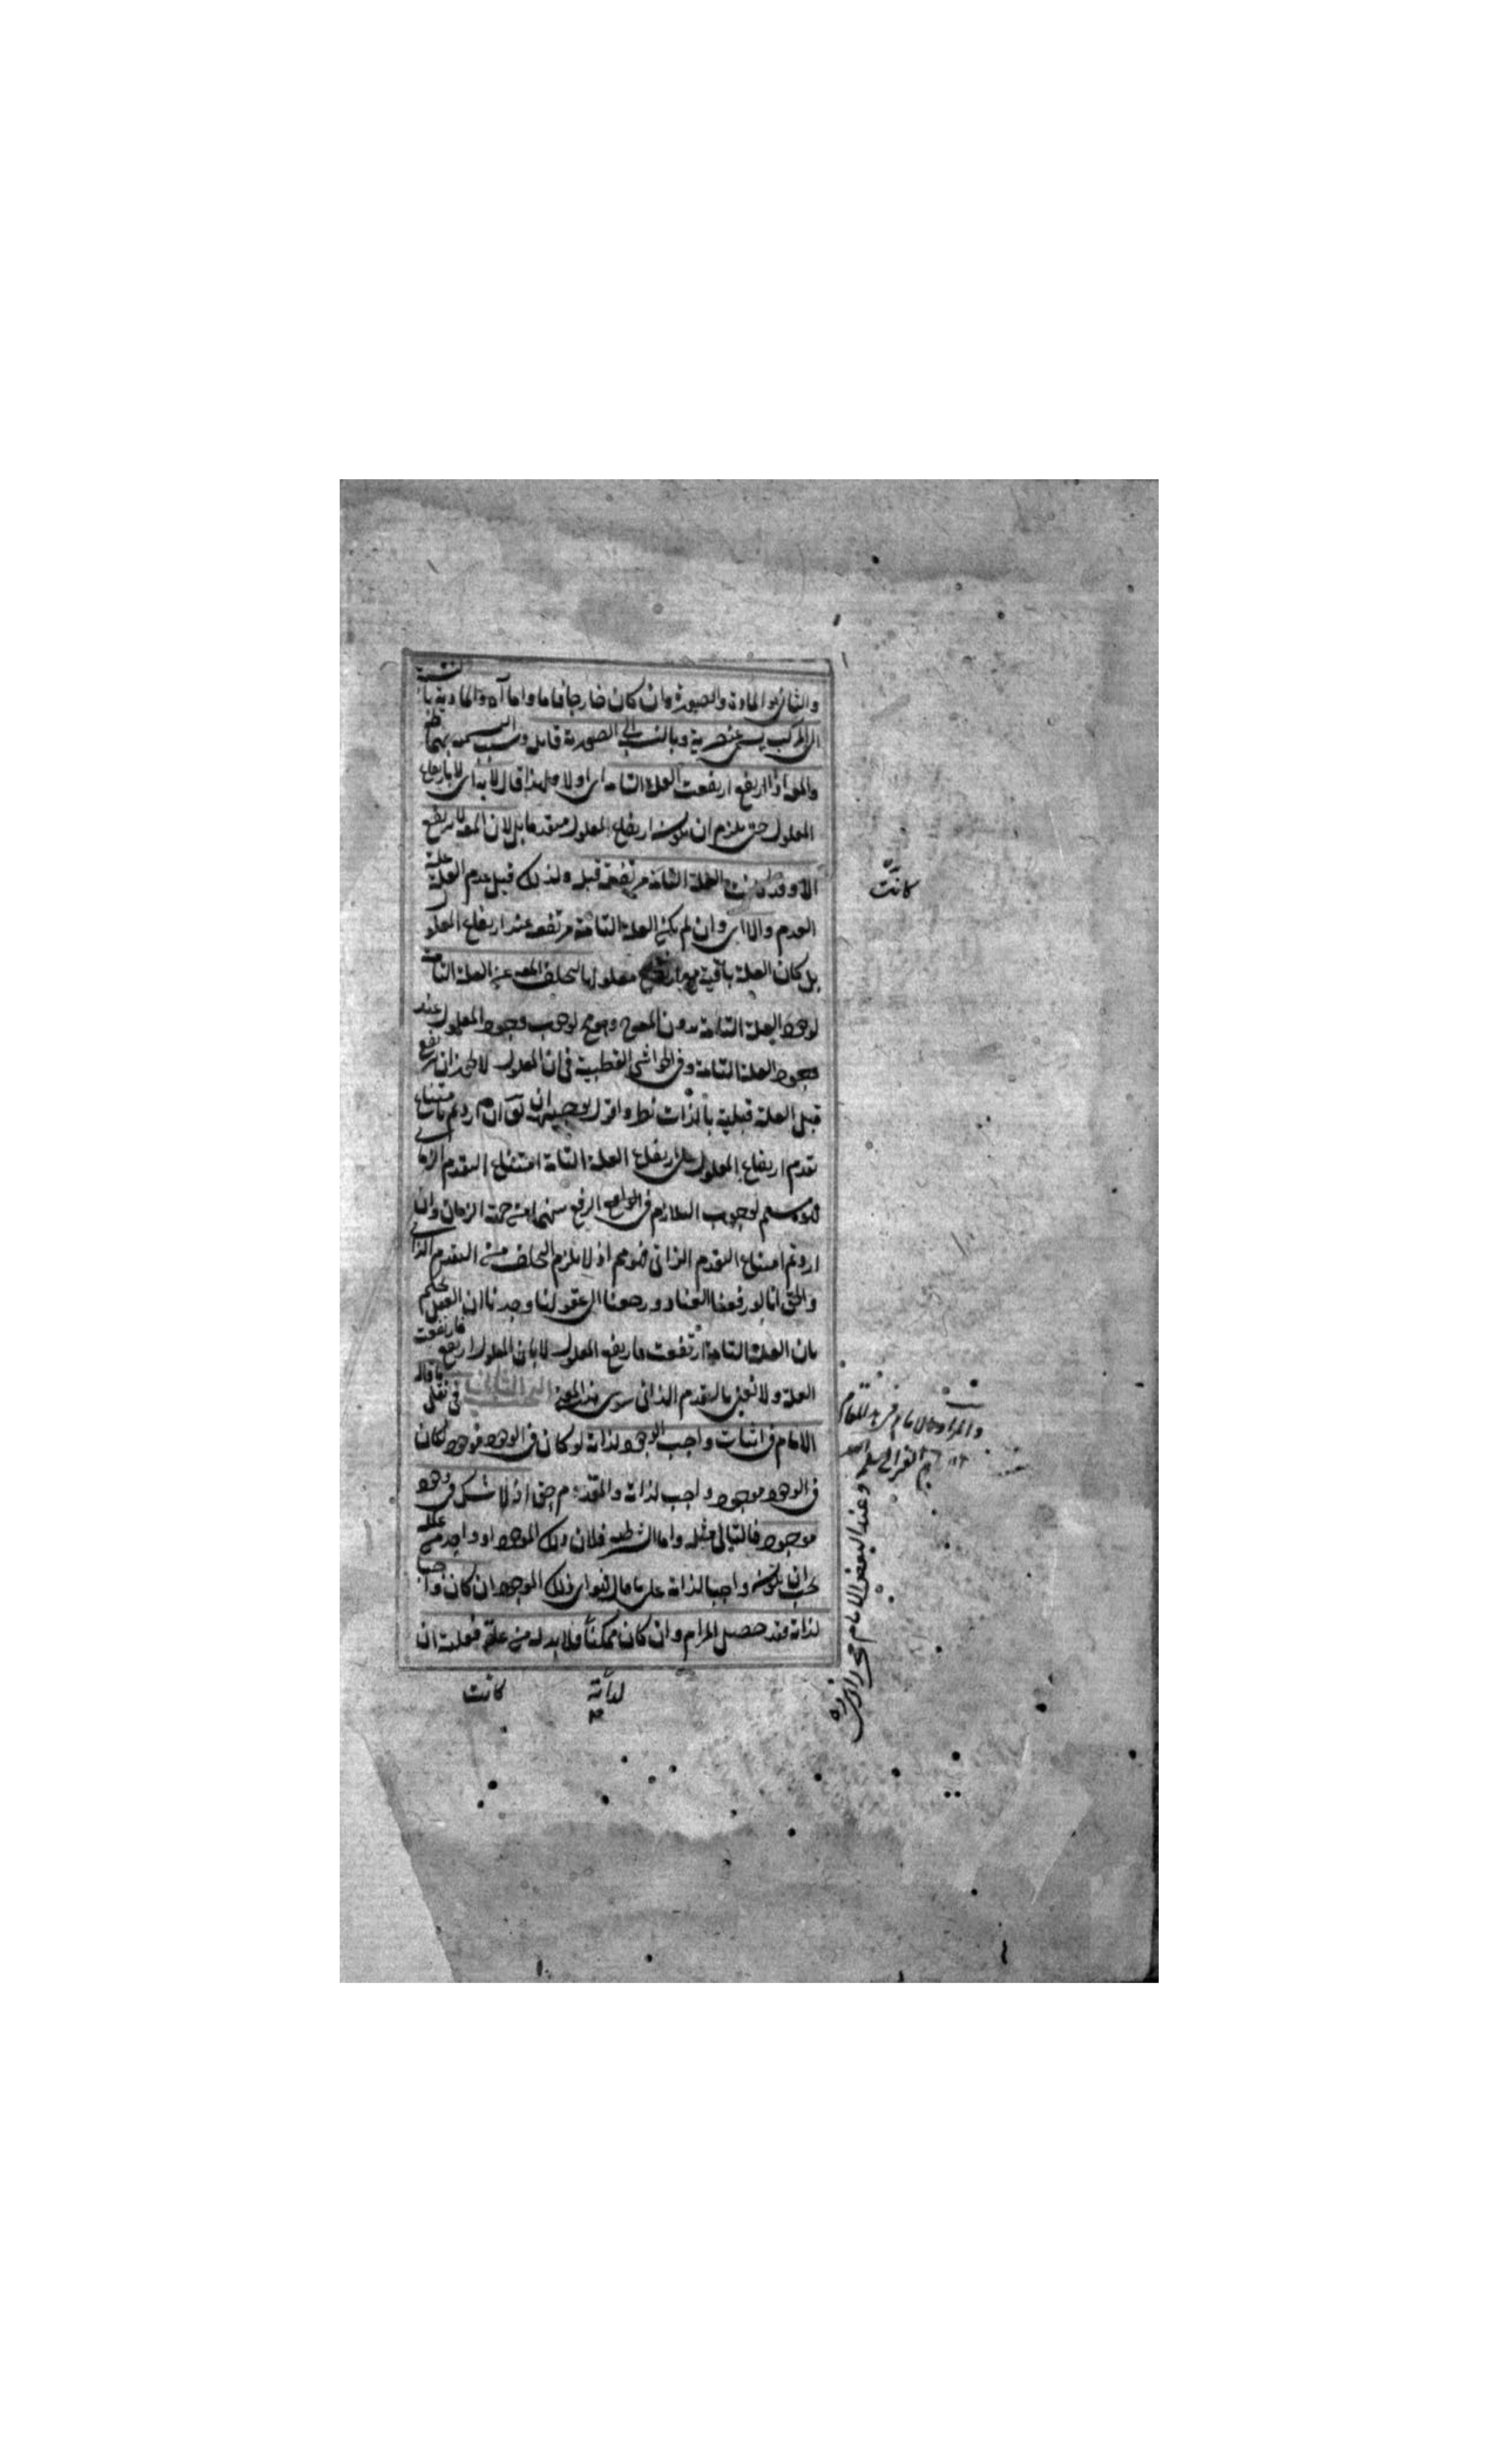 والثاني هو المادة والصورة وان كان خارجا فاما واما آه والمادية بالنسبة
الى المركب يسمى عنصرية وبالنسبة الى الصورية قابل
والمعلول اذا ارتفع ارتفعت العلة التامة اي اولا ولهذا قال لا بد اي لا بارتفاع
المعلول حتى يلزم ان يكون ارتفاع المعلول متقدما بل لان المعلول لا يرتفع
الا وقد كانت العلة التامة مرتفعة قبله ولذلك قيل عدم العلة علة
العدم والا اي وان لم تكن العلة التامة مرتفعة عند ارتفاع المعلول
بل كان العلة باقية مع ارتفاع معلولها لتخلف المعلول عن العلة التامة
لوجود العلة التامة بدون المعلول وهو مح لوجوب وجود المعلول عند
وجود العلة التامة وفي الحواشي القطبية في ان المعلول لا يجوز ان يرتفع
قبل العلة قبلية بالذات نظر واقول توجيهه ان يقال ان اردتم بامتناع
تقدم ارتفاع المعلول على ارتفاع العلة التامة امتناع التقدم الزماني
فهو مسلم لوجوب التلازم في الواقع الرفع بينهما من جهة الزمان وان
اردتم امتناع التقدم الذاتي فهو مم اذ لا يلزم التخلف من التقدم الذاتي
والحق انا لو رفعنا العناد ورجعنا الى عقولنا وجدنا ان العقل يحكم
بان العلة التامة ارتفعت فارتفع المعلول لا بان المعلول ارتفع فارتفعت
العلة ولا نعني بالتقدم الذاتي سوى هذا المعنى في نقل ما قاله
الامام في اثبات واجب الوجود لذاته لو كان في الوجود موجود لكان
في الوجود موجود واجب لذاته والمقدم حق اذ لا شك في وجود
موجود فالتالي مثله واما الشرطية فلان ذلك الموجود او واحد من علله
يجب ان يكون واجبا لذاته على ما قال لانه اي ذلك الموجود ان كان واجبا
لذاته فقد حصل المرام وان كان ممكنا فلا بد له من علة فعلته ان
كانت
لذاته
كانت
والمراد بالامام في هذا المقام
الغزالي
وعند البعض الامام محمد الرازي